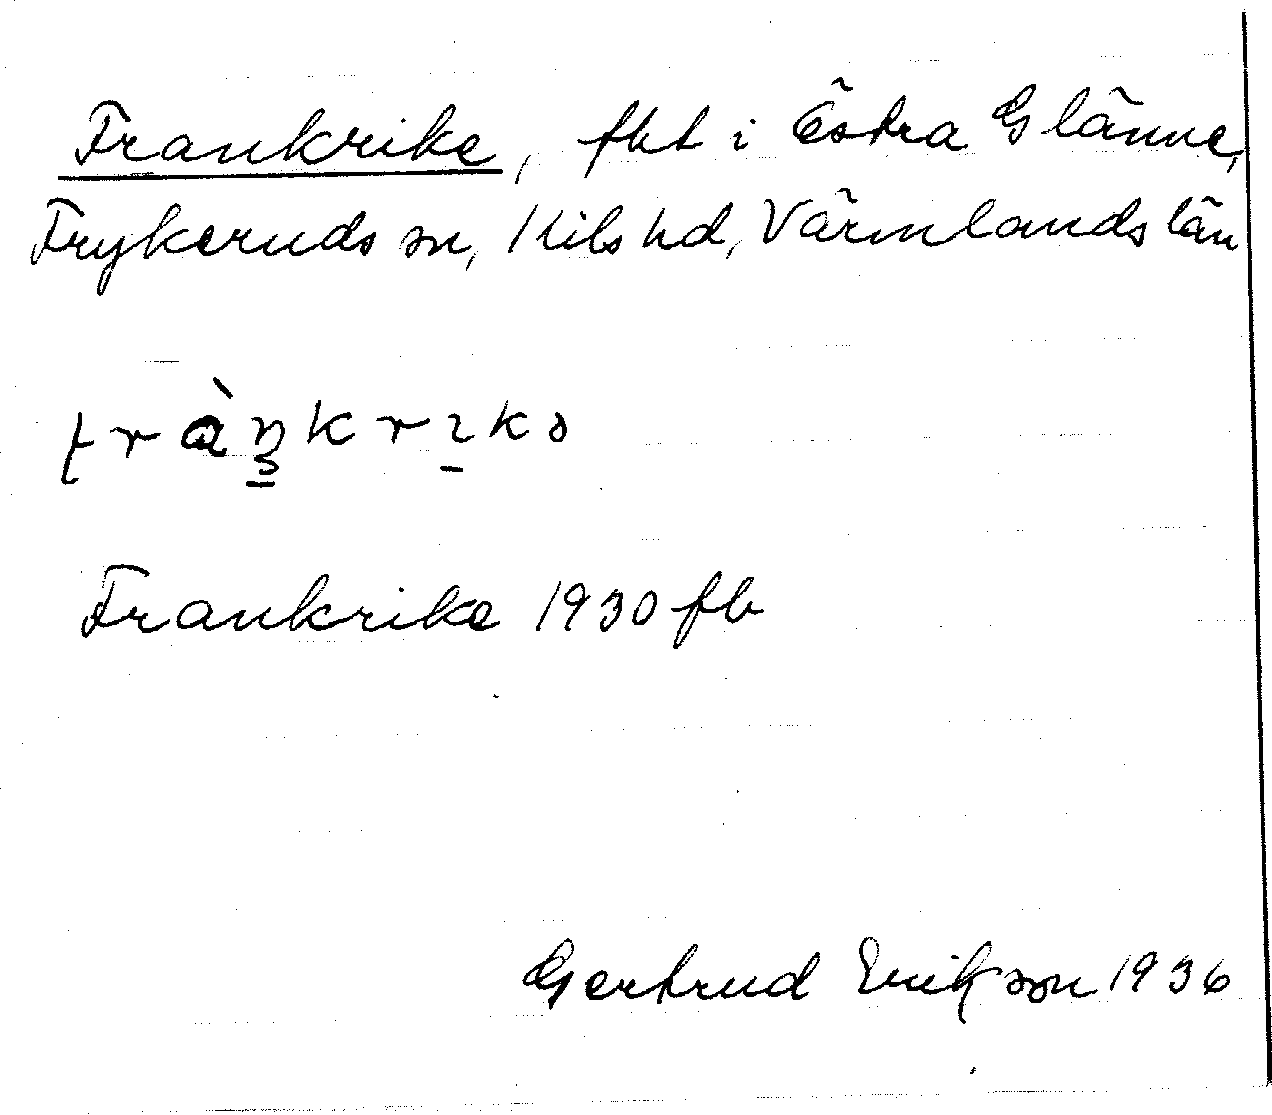 Frankrike, fbt i Östra Glänne,
Frykeruds sn, Kils hd, Värmlands län
fràŋ̠krɪ̠kə
Frankrike 1930 fb
Gertrud Erikson 1936